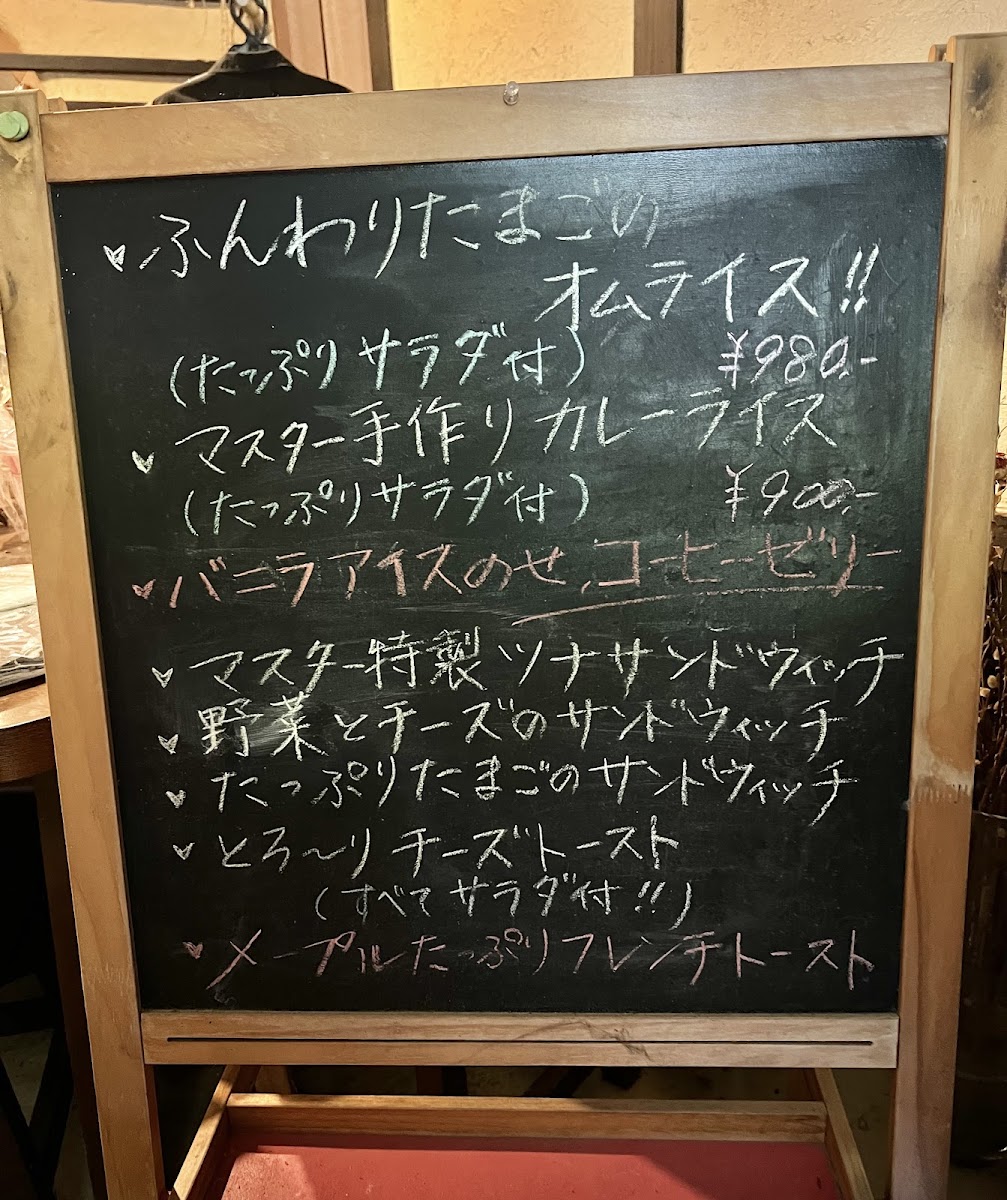 ♥ふんわりたまごの
オムライス!!
(たっぷりサラダ付) ¥980.-
♥マスター手作りカレーライス
(たっぷりサラダ付) ¥900.-
♥バニラアイスのせ、コーヒーゼリー
♥マスター特製ツナサンドウィッチ
♥野菜とチーズのサンドウィッチ
♥たっぷりたまごのサンドウィッチ
♥とろ〜りチーズトースト
(すべてサラダ付!!)
♥メープルたっぷりフレンチトースト